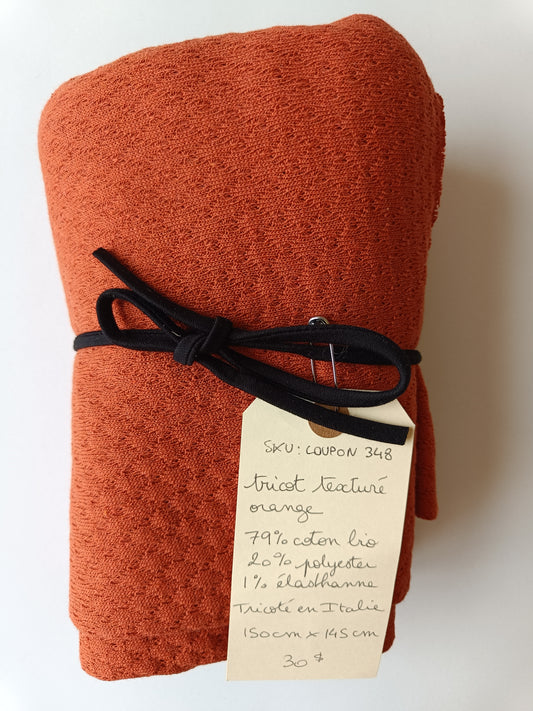 SKU: COUPON 348
tricot texturé
orange
79% coton bio
20% polyester
1% élasthanne
Tricoté en Italie
150cm x 145cm
30$